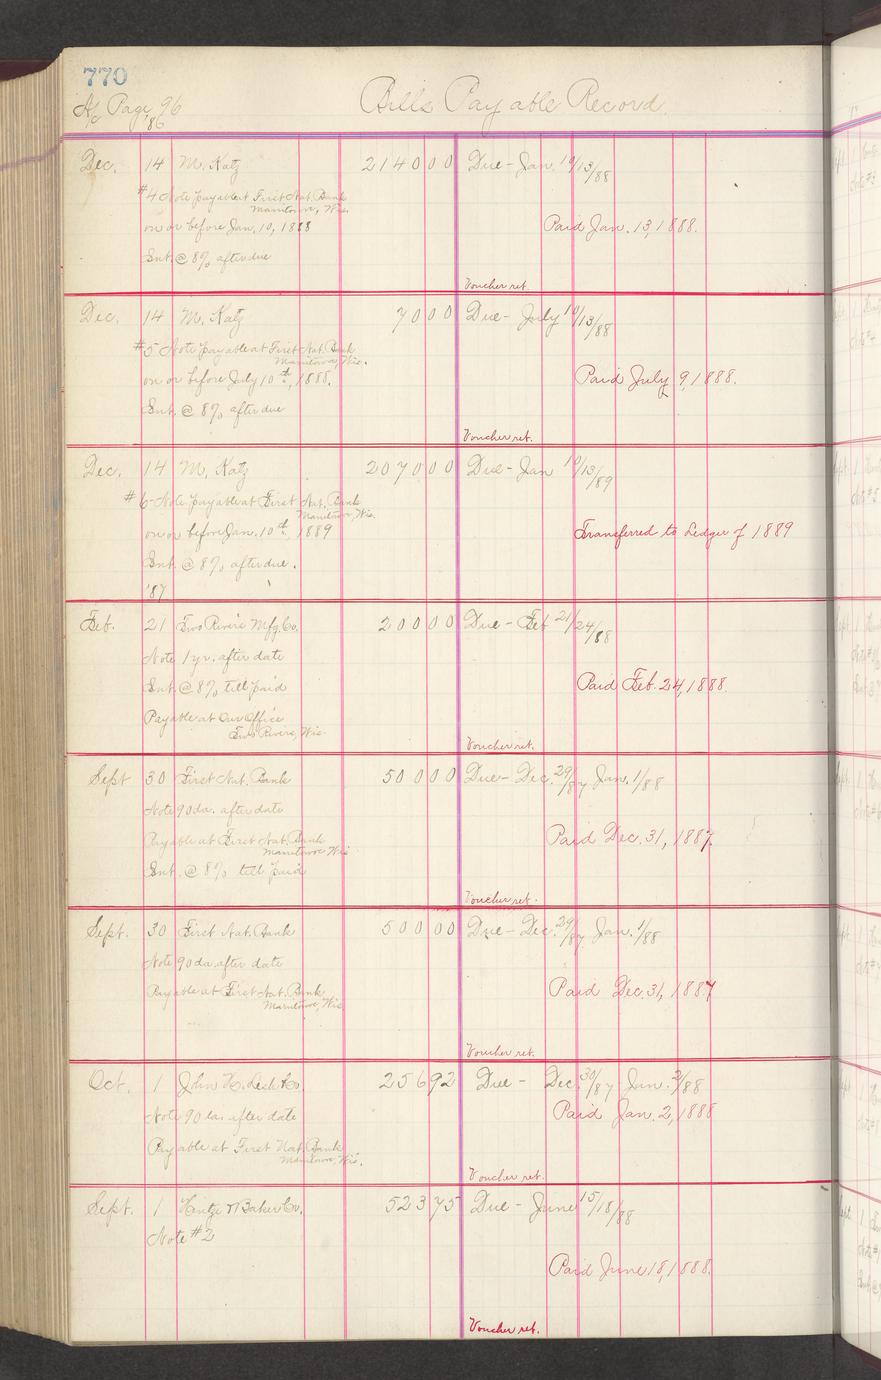 770
A/c Page 96
Bills Payable Record
'86
Dec. 14 M. Katz 2140 00 Due - Jan. 10/13/88
#4 Note payable at First Nat. Bank
Manitowoc, Wis.
on or before Jan. 10, 1888 Paid Jan. 13, 1888.
Int. @ 8% after due
Voucher ret.
Dec. 14 M. Katz 70 00 Due - July 10/13/88
#5 Note payable at First Nat. Bank
Manitowoc, Wis.
on or before July 10th, 1888. Paid July 9, 1888.
Int. @ 8% after due
Voucher ret.
Dec. 14 M. Katz 2070 00 Due - Jan 10/13/89
#6 Note payable at First Nat. Bank
Manitowoc, Wis.
on or before Jan. 10th, 1889 Transferred to Ledger of 1889
Int. @ 8% after due.
'87
Feb. 21 Two Rivers Mfg. Co. 200 00 Due - Feb 21/24/88
Note 1 yr. after date
Int. @ 8% till paid Paid Feb. 24, 1888.
Payable at Our Office
Two Rivers, Wis.
Voucher ret.
Sept 30 First Nat. Bank 500 00 Due - Dec. 29/87 Jan. 1/88
Note 90 da. after date
Payable at First Nat. Bank Paid Dec. 31, 1887.
Manitowoc Wis
Int. @ 8% till paid
Voucher ret.
Sept. 30 First Nat. Bank 500 00 Due - Dec. 29/87 Jan. 1/88
Note 90 da. after date
Payable at First Nat. Bank Paid Dec. 31, 1887
Manitowoc, Wis.
Voucher ret.
Oct. 1 John H. Co. 256 92 Due - Dec. 30/87 Jan. 2/88
Note 90 da. after date Paid Jan. 2, 1888
Payable at First Nat. Bank
Manitowoc, Wis.
Voucher ret.
Sept. 1 Baker Co. 523 75 Due - June 15/18/88
Note #2
Paid June 18, 1888.
Voucher ret.